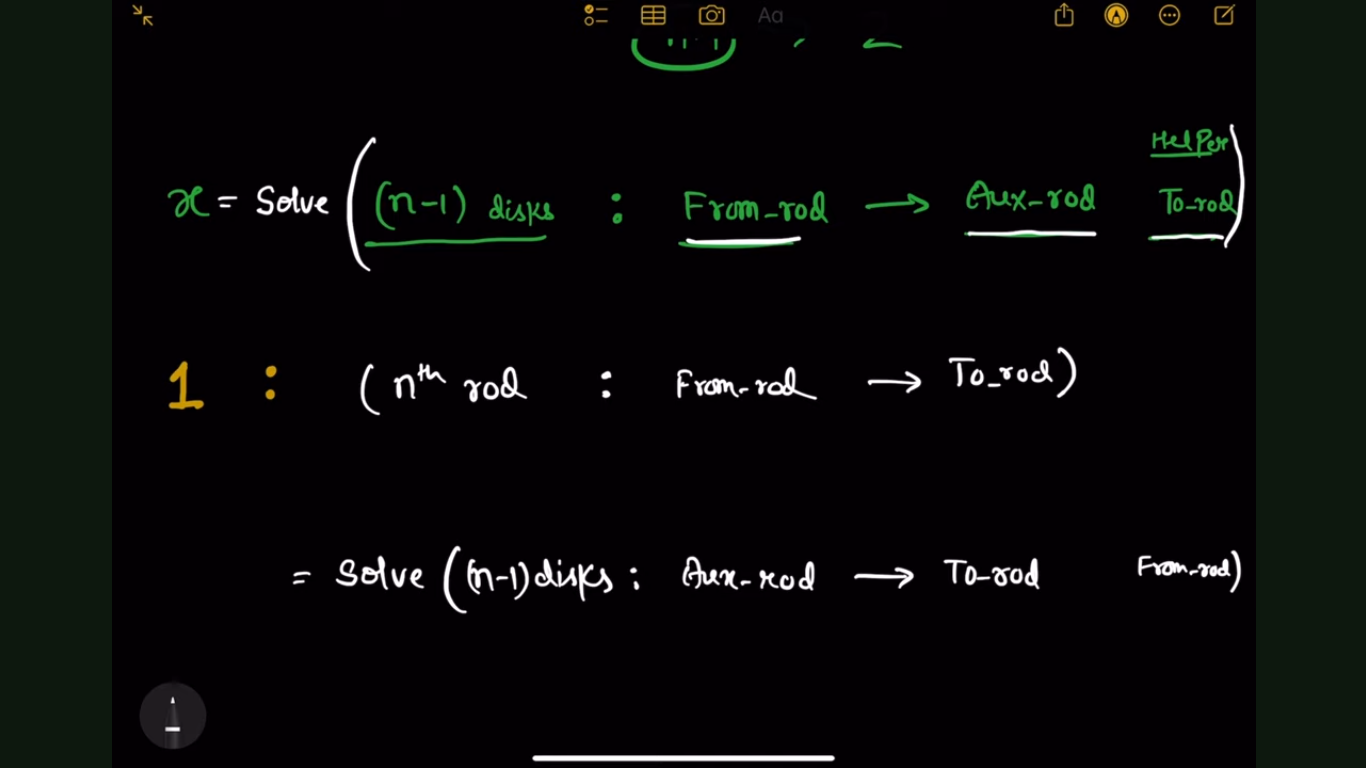 Aa
Helper
x = Solve ( (n-1) disks : From_rod → Aux-rod To_rod )
1 : ( nth rod : From-rod → To_rod )
= Solve ( (n-1) disks : Aux-rod → To-rod From_rod )